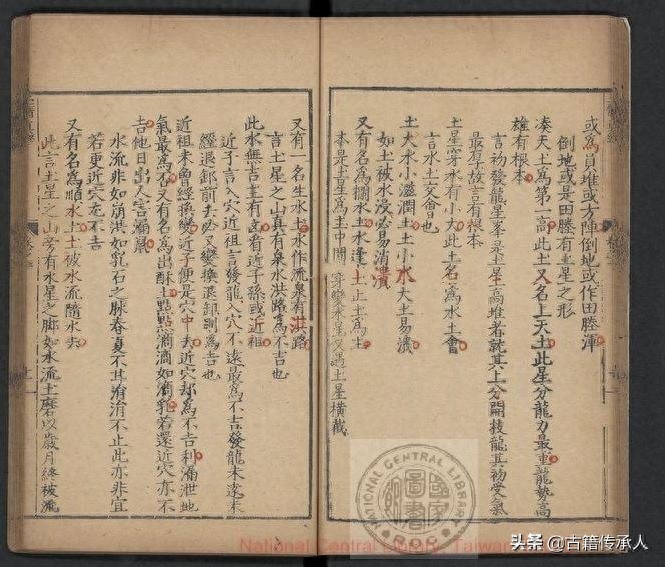 或為員堆或方陣倒地或作田塍渾
倒地或是田塍有土星之形
湊天土為第一高此土又名上天土此星分龍力最重龍勢高
雄有根本
言初發龍星峯是土星高堆者就其上分開枝龍其初受氣
最厚故言有根本
土星穿水有小大此土名為水土會
言水土交會也
土大水小滋潤土土小水大土易潰
如土被水浸必易消潰
又有名為攔水土水逢土止土為主
本是土星為主中間穿變水星又遇土星橫截
又有一名生水土水作流泉有洪路
言土星之山真有泉水洪路為不吉也
此水無吉主有凶看近子孫或近祖
近子言入穴近祖言發龍入穴不遠最為不吉發龍未遠未
經退卸前去必又變換退卸剝為吉也
近祖未曾經換變近子便是穴中去近穴却為不吉利漏泄地
氣最為否又有名為出酥土點點滴滴如滴乳若還近穴亦不
吉他日出人害漏風
水流非如崩洪如乳石之脉春夏不其涓涓不止此亦非宜
若更近穴尤不吉
又有名為順水土土被水流隨水去
此言土星之山旁有水星之脚如水流土磨以歲月終被流
National Central Library, Taiwan
NATIONAL CENTRAL LIBRARY
ROC
國家圖書館
头条 @古籍传承人